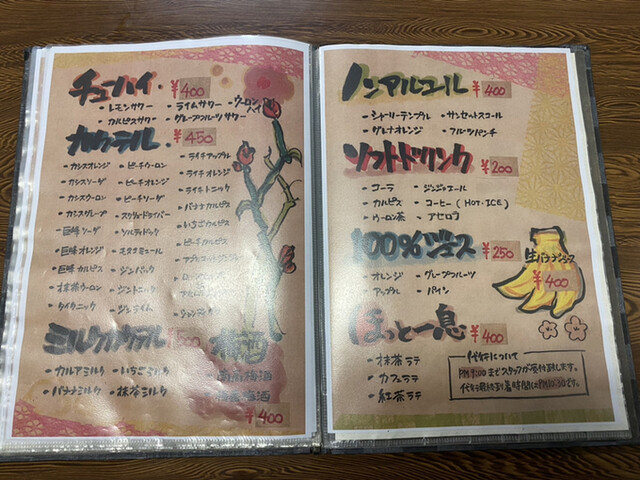 チューハイ. ¥400
・レモンサワー ・ライムサワー ・ウーロンハイ
・カルピスサワー ・グレープフルーツサワー
カクテル. ¥450
・カシスオレンジ ・ピーチウーロン ・ライチアップル
・カシスソーダ ・ピーチオレンジ ・ライチオレンジ
・カシスウーロン ・ピーチソーダ ・ライチトニック
・カシスグレープ ・スクリュードライバー ・バナナカルピス
・巨峰ソーダ ・ソルティドック ・いちごカルピス
・巨峰オレンジ ・モスコミュール ・ピーチカルピス
・巨峰カルピス ・ジンバック
・抹茶ウーロン ・ジントニック
・タイタニック ・ジンライム ・シャンディ
ミルクカクテル
・カルアミルク ・いちごミルク
・バナナミルク ・抹茶ミルク
梅酒
南高梅酒
梅酒
¥400
ノンアルコール ¥400
・シャーリーテンプル ・サンセットスコール
・グレナオレンジ ・フルーツパンチ
ソフトドリンク ¥200
・コーラ ・ジンジャエール
・カルピス ・コーヒー(HOT・ICE)
・ウーロン茶 ・アセロラ
100%ジュース ¥250
・オレンジ ・グレープルーツ
・アップル ・パイン
生バナナジュース
¥400
ほっと一息 ¥400
・抹茶ラテ
・カフェラテ
・紅茶ラテ
代行について
PM9:00までスタッフが受付致します。